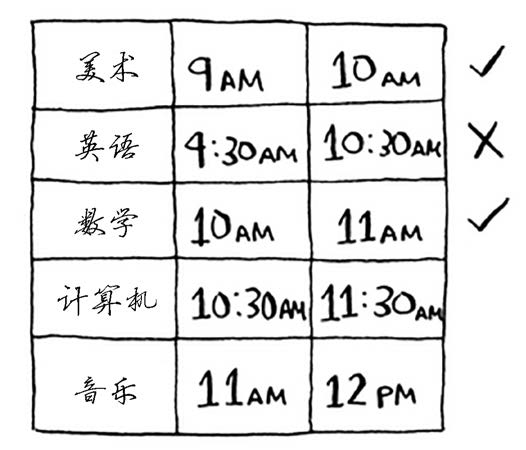 美术 9AM 10AM ✓
英语 9:30AM 10:30AM ✗
数学 10AM 11AM ✓
计算机 10:30AM 11:30AM
音乐 11AM 12PM